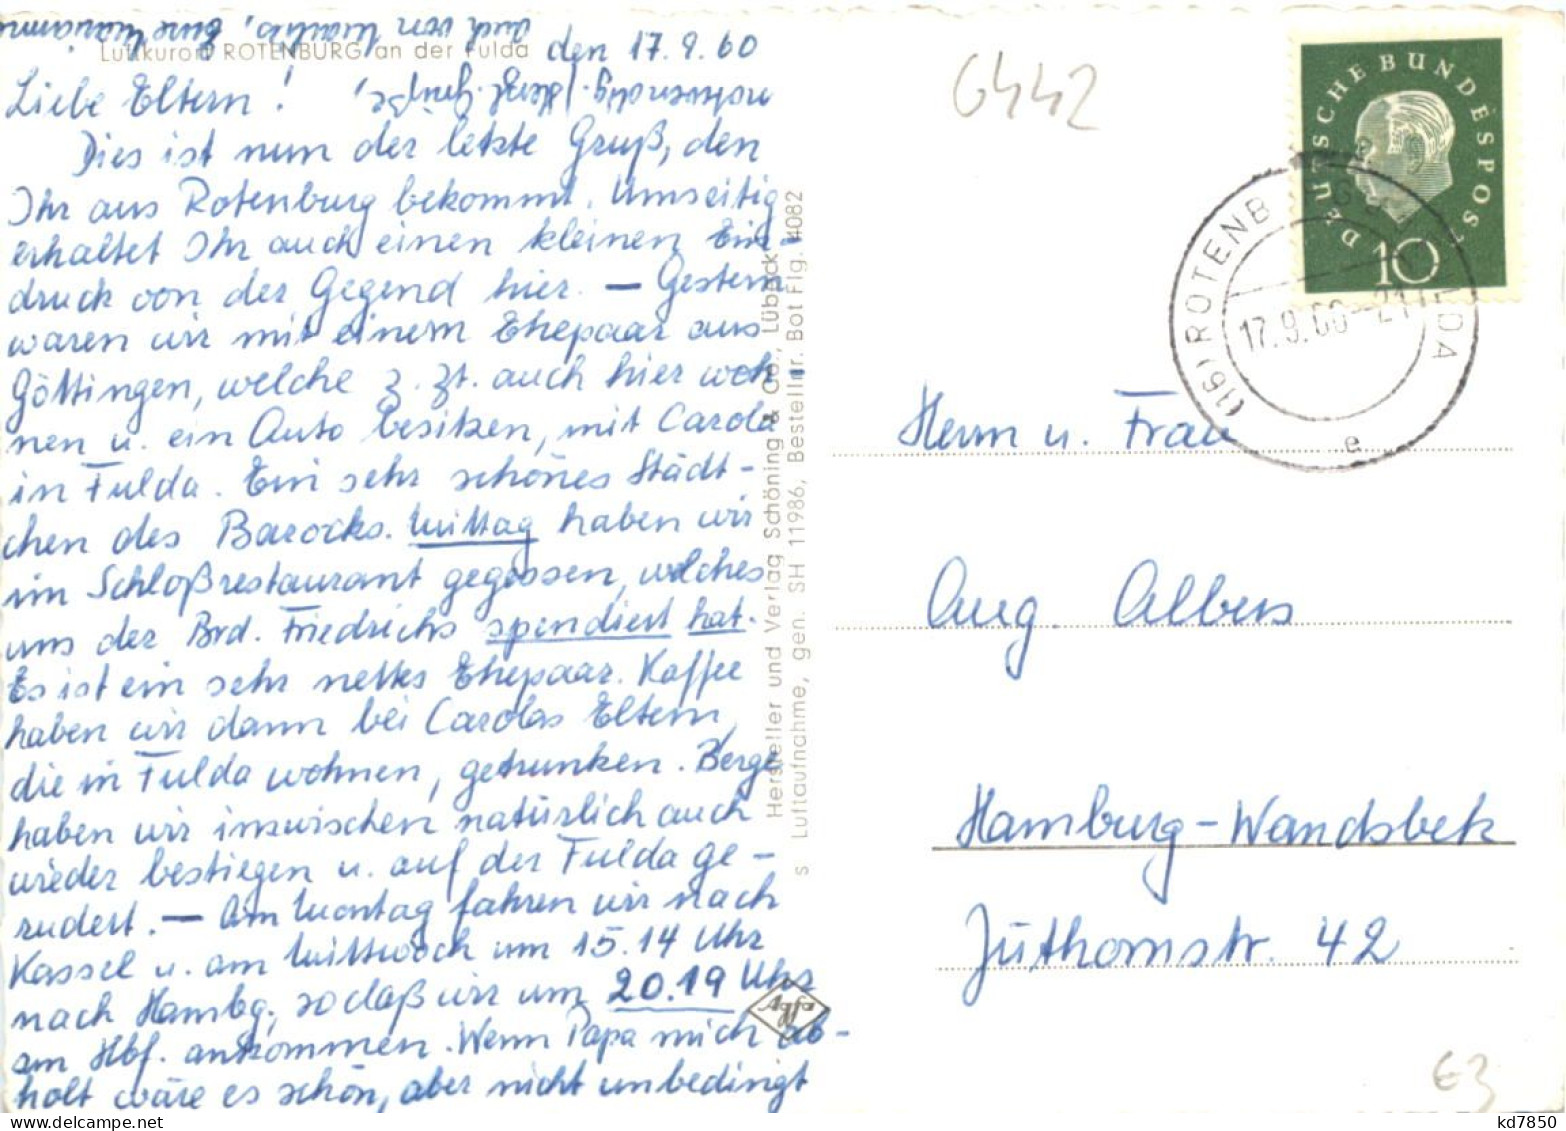 Luftkurort ROTENBURG an der Fulda
den 17.9.60
Liebe Eltern!
Dies ist nun der letzte Gruß, den
Ihr aus Rotenburg bekommt. Umseitig
erhaltet Ihr auch einen kleinen Ein-
druck von der Gegend hier. — Gestern
waren wir mit einem Ehepaar aus
Göttingen, welche z. Zt. auch hier woh-
nen u. ein Auto besitzen, mit Carola
in Fulda. Ein sehr schönes Städt-
chen des Barocks. Mittag haben wir
im Schloßrestaurant gegessen, welches
uns der Brd. Friedrichs spendiert hat.
Es ist ein sehr nettes Ehepaar. Kaffee
haben wir dann bei Carolas Eltern,
die in Fulda wohnen, getrunken. Berge
haben wir inzwischen natürlich auch
wieder bestiegen u. auf der Fulda ge-
rudert. — Am Montag fahren wir nach
Kassel u. am Mittwoch um 15.14 Uhr
nach Hambg., so daß wir um 20.19 Uhr
am Hbf. ankommen. Wenn Papa mich ab-
holt wäre es schön, aber nicht unbedingt
notwendig. Herzl. Grüße,
auch von Eure Marianne
Hersteller und Verlag Schöning & Co., Lübeck
s Luftaufnahme, gen. SH 11986, Bestellnr. Bot Flg. 4082
Agfa
6442
DEUTSCHE BUNDESPOST
10
(16) ROTENB FULDA
17.9.60-21
e
Herrn u. Frau
Aug. Albers
Hamburg-Wandsbek
Jüthornstr. 42
€3
kd7850